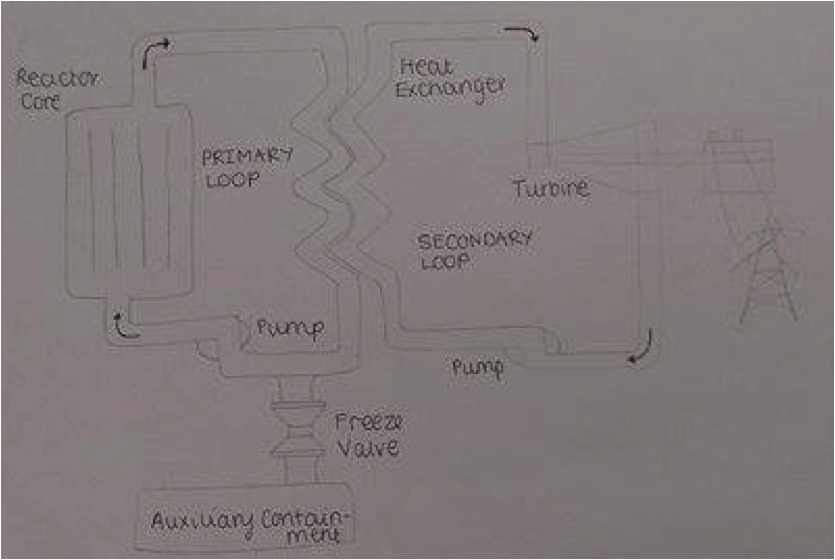 Reactor
Core
PRIMARY
LOOP
Heat
Exchanger
Turbine
SECONDARY
LOOP
Pump
Pump
Freeze
Valve
Auxiliary Contain-
ment